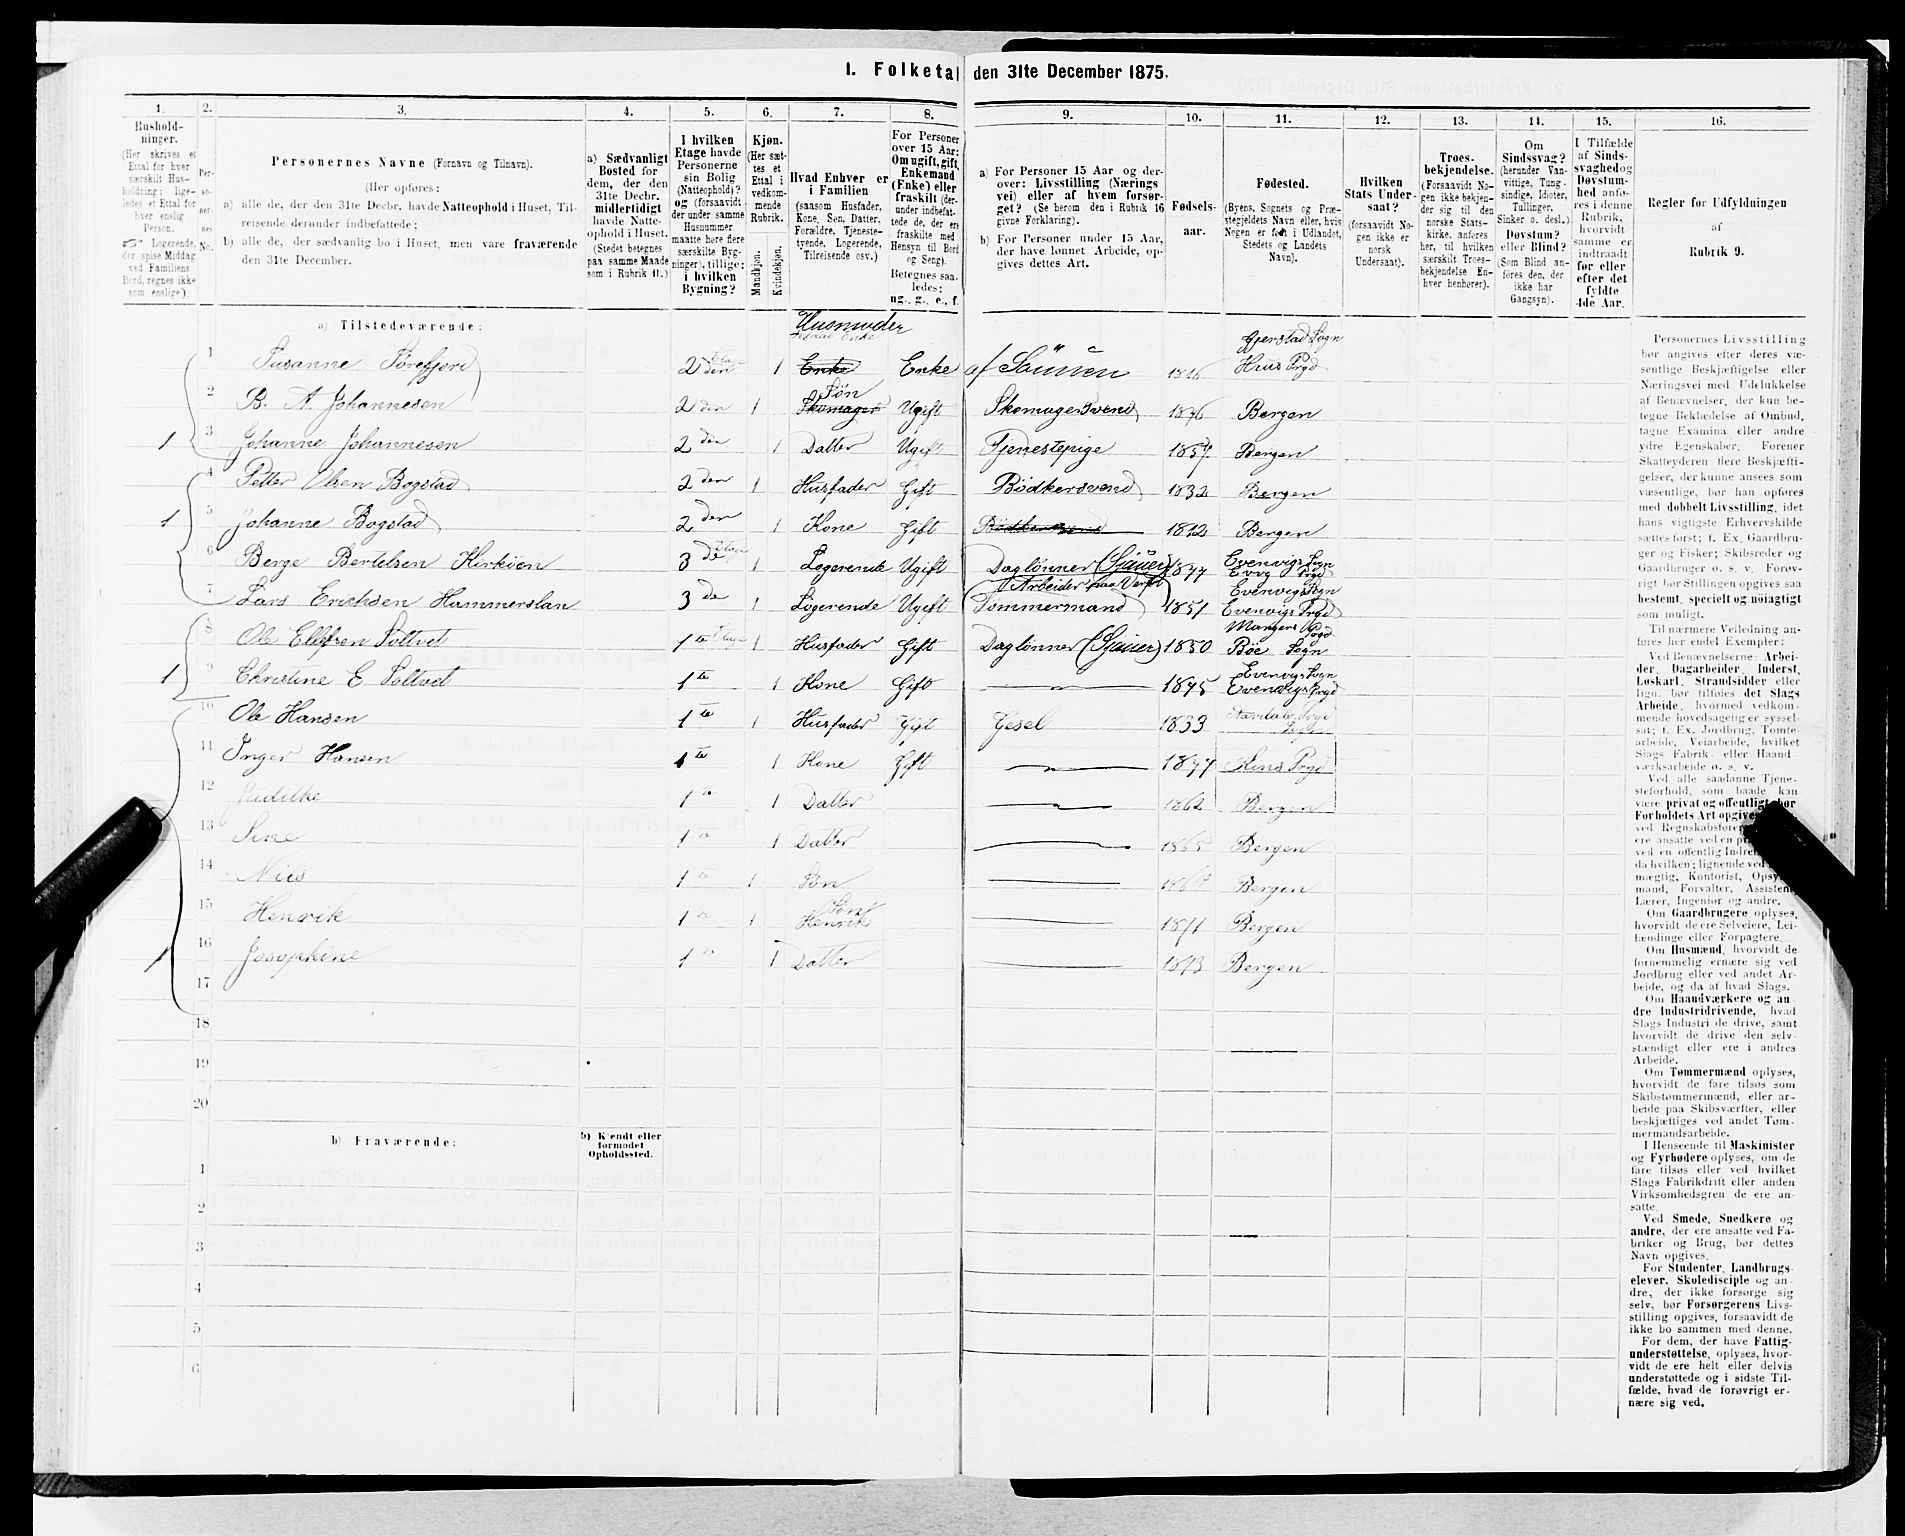 1. Folketal den 31te December 1875.
1. 2. 3. 4. 5. 6. 7. 8. 9. 10. 11. 12. 13. 14. 15. 16.
Hushold-
ninger.
(Her skrives et
Ettal for hver
særskilt Hus-
holdning; lige-
ledes et Ettal for
hver enslig
Person.
☞ Logerende,
der spise Middag
ved Familiens
Bord, regnes ikke
som enslige).
Per-
so-
ner-
nes
No.
Personernes Navne (Fornavn og Tilnavn).
(Her opføres:
a) alle de, der den 31te Decbr. havde Natteophold i Huset, Til-
reisende derunder indbefattede;
b) alle de, der sædvanlig bo i Huset, men vare fraværende
den 31te December.
a) Sædvanligt
Bosted for
dem, der den
31te Decbr.
midlertidigt
havde Natte-
ophold i Huset.
(Stedet betegnes
paa samme Maade
som i Rubrik 11.)
I hvilken
Etage havde
Personerne
sin Bolig
(Natteophold)?
og (forsaavidt
der under samme
Husnummer
maatte høre flere
særskilte Byg-
ninger), tillige:
i hvilken
Bygning?
Kjøn.
(Her sæt-
tes et
Ettal i
vedkom-
mende
Rubrik.
Mandkjøn.
Kvindekjøn.
Hvad Enhver er
i Familien
(saasom Husfader,
Kone, Søn, Datter,
Forældre, Tjeneste-
tyende, Logerende,
Tilreisende osv.)
For Personer
over 15 Aar:
Om ugift, gift,
Enkemand
(Enke) eller
fraskilt (der-
under indbefat-
tede de, der ere
fraskilte med
Hensyn til Bord
og Seng).
Betegnes saa-
ledes:
ug., g., e., f.
a) For Personer 15 Aar og der-
over: Livsstilling (Nærings
vei) eller af hvem forsør-
get? (Se herom den i Rubrik 16
givne Forklaring).
b) For Personer under 15 Aar,
der have lønnet Arbeide, op-
gives dettes Art.
Fødsels-
aar.
Fødested.
(Byens, Sognets og Præ-
stegjeldets Navn eller, hvis
Nogen er født i Udlandet,
Stedets og Landets
Navn).
Hvilken
Stats Under-
saat?
(forsaavidt No-
gen ikke er
norsk
Undersaat).
Troes-
bekjendelse.
(Forsaavidt No-
gen ikke bekjen-
der sig til den
norske Stats-
kirke, anføres
her, til hvilken
særskilt Troes-
bekjendelse En-
hver henhører).
Om
Sindssvag?
(herunder Van-
vittige, Tung-
sindige, Idioter,
Tullinger,
Sinker o. desl.)
Døvstum?
eller Blind?
(Som Blind an-
føres den, der
ikke har
Gangsyn).
I Tilfælde
af Sinds-
svaghed og
Døvstum-
hed anfø-
res i denne
Rubrik,
hvorvidt
samme er
indtraadt
før eller
efter det
fyldte
4de Aar.
Regler for Udfyldningen
af
Rubrik 9.
a) Tilstedeværende:
Husmoder
Enke
1 Susanne Sørefjord 2 den Etage 1 Enke Enke af Sønnen Gjerstad Sogn Huus Prgd
2 B. A. Johannesen 2 den 1 Skomager Søn Ugift Skomagersvend 1846 Bergen
1 3 Johanne Johannesen 2 den 1 Datter Ugift Tjenestepige Bergen
4 Petter Olsen Bogstad 2 den 1 Husfader Gift Bødkersvend 1832 Bergen
1 5 Johanne Bogstad 2 den 1 Kone Gift Bødkersvend Bergen
6 Berge Bertelsen Kirkøen 3 de Etage 1 Logerende Ugift Daglønner (Sjauer) Evenvigs Sogn Evvg Prgd
7 Lars Ericksen Hammerslan 3 de 1 Logerende Ugift Tømmermand (Arbeider paa Verft) 1851 Evenvigs Sogn Evenvigs Prgd
8 Ole Ellefsen Soltvet 1 te Etage 1 Husfader Gift Daglønner (Sjauer) 1850 Mangers Prgd Bøe Sogn
1 9 Christine E Soltvet 1 te 1 Kone Gift 1845 Evenvigs Sogn Evenvigs Prgd
10 Ole Hansen 1 te 1 Husfader Gift Gesel 1833 Aardals Prgd
11 Inger Hansen 1 te 1 Kone Gift Kins Prgd
12 1 te 1 Datter 1862 Bergen
13 Sine 1 te 1 Datter 1865 Bergen
14 Nils 1 te 1 Søn Bergen
15 Henrik 1 te 1 Henrik Søn 1871 Bergen
1 16 Josephine 1 te 1 Datter 1873 Bergen
17
18
19
20
b) Fraværende:
b) Kjendt eller
formodet
Opholdssted.
1
2
3
4
5
6
Personernes Livsstilling
bør angives efter deres væ-
sentlige Beskjæftigelse eller
Næringsvei med Udelukkelse
af Benævnelser, der kun be-
tegne Beklædelse af Ombud,
tagne Examina eller andre
ydre Egenskaber. Forener
Skatteyderen flere Beskjæfti-
gelser, der kunne ansees som
væsentlige, bør han opføres
med dobbelt Livsstilling, idet
hans vigtigste Erhvervskilde
sættes først; f. Ex. Gaardbru-
ger og Fisker; Skibsreder og
Gaardbruger o. s. v. Forøv-
rigt bør Stillingen opgives saa
bestemt, specielt og nøiagtigt
som muligt.
Til nærmere Veiledning an-
føres her endel Exempler:
Ved Benævnelserne: Arbei-
der, Dagarbeider, Inderst,
Løskarl, Strandsidder eller
lign. bør tilføies det Slags
Arbeide, hvormed vedkom-
mende hovedsagelig er syssel-
sat; f. Ex. Jordbrug, Tomte-
arbeide, Veiarbeide, hvilket
Slags Fabrik eller Haand-
værksarbeide o. s. v.
Ved alle saadanne Tjene-
steforhold, som baade kan
være privat og offentligt, bør
Forholdets Art opgives,
ved Regnskabsfører,
ere ansatte ved en
ved en offentlig
da hvilken; lignende ved
mægtig, Kontorist, Opsyns-
mand, Forvalter, Assistent,
Lærer, Ingeniør og andre.
Om Gaardbrugere oplyses,
hvorvidt de ere Selveiere, Lei-
lændinge eller Forpagtere.
Om Husmænd, hvorvidt de
fornemmelig ernære sig ved
Jordbrug eller ved andet Ar-
beide, og da af hvad Slags.
Om Haandværkere og an-
dre Industridrivende, hvad
Slags Industri de drive, samt
hvorvidt de drive den selv-
stændigt eller ere i andres
Arbeide.
Om Tømmermænd oplyses,
hvorvidt de fare tilsøs som
Skibstømmermænd, eller ar-
beide paa Skibsværfter, eller
beskjæftiges ved andet Tøm-
mermandsarbeide.
I Henseende til Maskinister
og Fyrbødere oplyses, om de
fare tilsøs eller ved hvilket
Slags Fabrikdrift eller anden
Virksomhedsgren de ere an-
satte.
Ved Smede, Snedkere og
andre, der ere ansatte ved Fa-
briker og Brug, bør dettes
Navn opgives.
For Studenter, Landbrugs-
elever, Skoledisciple og an-
dre, der ikke forsørge sig
selv, bør Forsørgerens Livs-
stilling opgives, forsaavidt de
ikke bo sammen med denne.
For dem, der have Fattig-
understøttelse, oplyses, hvor-
vidt de ere helt eller delvis
understøttede og i sidste Til-
fælde, hvad de forøvrigt er-
nære sig ved.